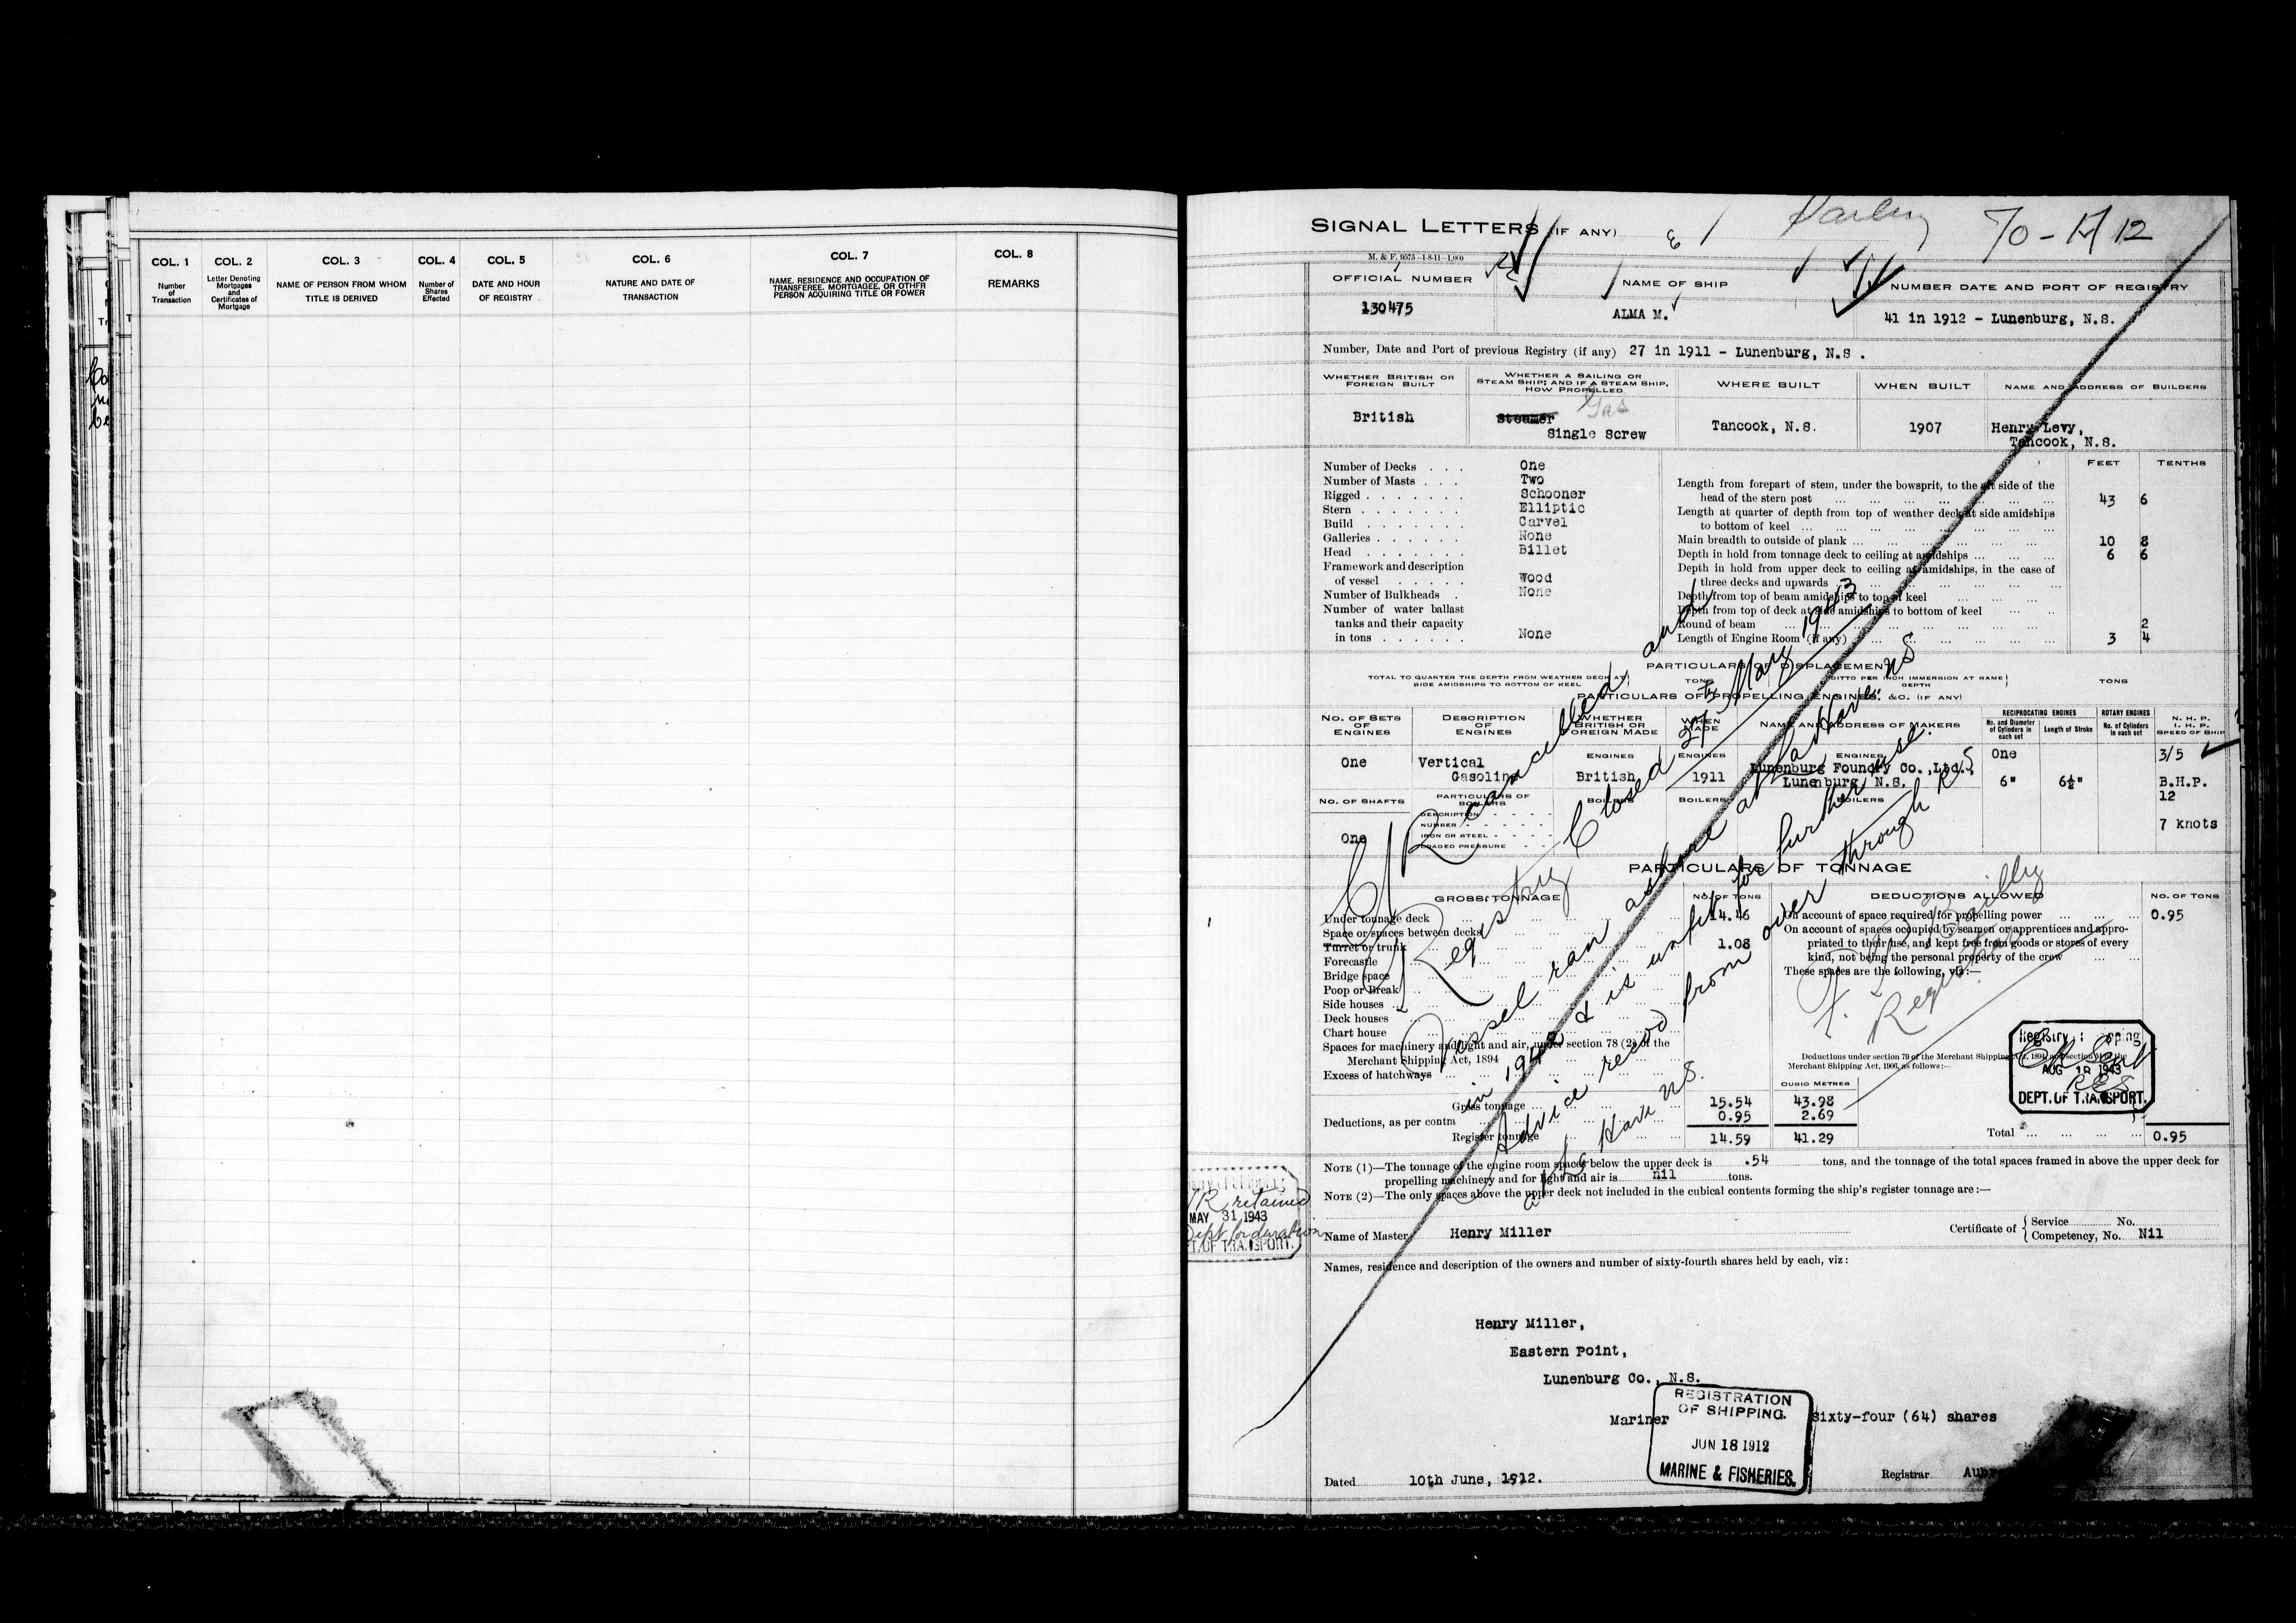 COL. 1
Number
of
Transaction
COL. 2
Letter Denoting
Mortgages
and
Certificates of
Mortgage
COL. 3
NAME OF PERSON FROM WHOM
TITLE IS DERIVED
COL. 4
Number of
Shares
Effected
COL. 5
DATE AND HOUR
OF REGISTRY
COL. 6
NATURE AND DATE OF
TRANSACTION
COL. 7
NAME, RESIDENCE AND OCCUPATION OF
TRANSFEREE, MORTGAGEE, OR OTHER
PERSON ACQUIRING TITLE OR POWER
COL. 8
REMARKS
SIGNAL LETTERS (IF ANY)
M. & F. 9575—1-8-11—1,000
OFFICIAL NUMBER
130475
NAME OF SHIP
ALMA M.
NUMBER DATE AND PORT OF REGISTRY
41 in 1912 - Lunenburg, N.S.
Number, Date and Port of previous Registry (if any) 27 in 1911 - Lunenburg, N.S.
WHETHER BRITISH OR
FOREIGN BUILT
British
WHETHER A SAILING OR
STEAM SHIP; AND IF A STEAM SHIP,
HOW PROPELLED
Gas
Steamer
Single Screw
WHERE BUILT
Tancook, N.S.
WHEN BUILT
1907
NAME AND ADDRESS OF BUILDERS
Henry Levy,
Tancook, N.S.
Number of Decks . . . One
Number of Masts . . . Two
Rigged . . . . . . . Schooner
Stern . . . . . . . Elliptic
Build . . . . . . . Carvel
Galleries . . . . . . None
Head . . . . . . . Billet
Framework and description
of vessel . . . . . Wood
Number of Bulkheads . None
Number of water ballast
tanks and their capacity
in tons . . . . . . None
FEET TENTHS
Length from forepart of stem, under the bowsprit, to the aft side of the
head of the stern post 43 6
Length at quarter of depth from top of weather deck at side amidships
to bottom of keel
Main breadth to outside of plank 10 8
Depth in hold from tonnage deck to ceiling at amidships 6 6
Depth in hold from upper deck to ceiling at amidships, in the case of
three decks and upwards
Depth from top of beam amidships to top of keel
Depth from top of deck at side amidships to bottom of keel
Round of beam 2
Length of Engine Room (if any) 3 4
PARTICULARS OF DISPLACEMENT
TOTAL TO QUARTER THE DEPTH FROM WEATHER DECK AT
SIDE AMIDSHIPS TO BOTTOM OF KEEL
TONS
DITTO PER INCH IMMERSION AT SAME
DEPTH
TONS
PARTICULARS OF PROPELLING ENGINES, &C. (IF ANY)
NO. OF SETS
OF
ENGINES
One
DESCRIPTION
OF
ENGINES
Vertical
Gasoline
WHETHER
BRITISH OR
FOREIGN MADE
ENGINES
British
WHEN
MADE
ENGINES
1911
NAME AND ADDRESS OF MAKERS
ENGINES
Lunenburg Foundry Co., Ltd.,
Lunenburg N.S.
RECIPROCATING ENGINES
No. and Diameter
of Cylinders in
each set
One
6"
Length of Stroke
6½"
ROTARY ENGINES
No. of Cylinders
in each set
N. H. P.
I. H. P.
SPEED OF SHIP
3/5
B.H.P.
12
7 knots
NO. OF SHAFTS
One
PARTICULARS OF
BOILERS
DESCRIPTION
NUMBER
IRON OR STEEL
LOADED PRESSURE
BOILERS
BOILERS
BOILERS
PARTICULARS OF TONNAGE
GROSS TONNAGE
NO. OF TONS
Under tonnage deck 14.46
Space or spaces between decks
Turret or trunk 1.08
Forecastle
Bridge space
Poop or Break
Side houses
Deck houses
Chart house
Spaces for machinery and light and air, under section 78 (2) of the
Merchant Shipping Act, 1894
Excess of hatchways
Gross tonnage 15.54
Deductions, as per contra 0.95
Register tonnage 14.59
CUBIC METRES
43.98
2.69
41.29
DEDUCTIONS ALLOWED
NO. OF TONS
On account of space required for propelling power 0.95
On account of spaces occupied by seamen or apprentices and appro-
priated to their use, and kept free from goods or stores of every
kind, not being the personal property of the crew
These spaces are the following, viz:—
Deductions under section 79 of the Merchant Shipping Act, 1894, and section 54 of the
Merchant Shipping Act, 1906, as follows:—
Total 0.95
C/R cancelled and
Registry Closed 27th May 1943
Vessel ran ashore at LaHave NS
in 1942 & is unfit for further use.
Advice recvd from owner through R S
at La Have NS.
Registrar
AUG 18 1943
DEPT. OF TRANSPORT.
C/R retained
MAY 31 1943
Dept for duration
DEPT. OF TRANSPORT.
NOTE (1)—The tonnage of the engine room spaces below the upper deck is .54 tons, and the tonnage of the total spaces framed in above the upper deck for
propelling machinery and for light and air is nil tons.
NOTE (2)—The only spaces above the upper deck not included in the cubical contents forming the ship's register tonnage are:—
Name of Master Henry Miller
Certificate of { Service No.
Competency, No. Nil
Names, residence and description of the owners and number of sixty-fourth shares held by each, viz:
Henry Miller,
Eastern Point,
Lunenburg Co., N.S.
Mariner Sixty-four (64) shares
REGISTRATION
OF SHIPPING.
JUN 18 1912
MARINE & FISHERIES.
Dated 10th June, 1912.
Registrar